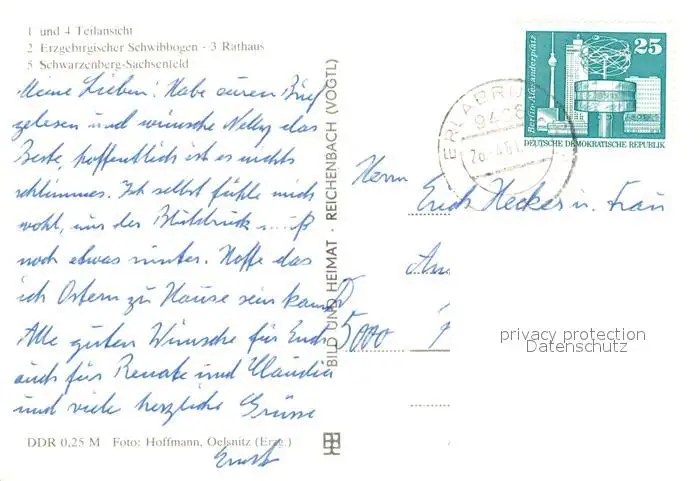 1 und 4 Teilansicht
2 Erzgebirgischer Schwibbogen - 3 Rathaus
5 Schwarzenberg-Sachsenfeld
Meine Lieben! Habe euren Brief
gelesen und wünsche Nelly das
Beste, hoffentlich ist es nichts
schlimmes. Ich selbst fühle mich
wohl, nur der Blutdruck muß
noch etwas runter. Hoffe das
ich Ostern zu Hause sein kann
Alle guten Wünsche für Euch
auch für Renate und Claudia
und viele herzliche Grüsse
Erich
DDR 0,25 M Foto: Hoffmann, Oelsnitz (Erzg.)
BILD UND HEIMAT · REICHENBACH (VOGTL)
ERLABRU
25
Berlin-Alexanderplatz
DEUTSCHE DEMOKRATISCHE REPUBLIK
Herrn
Erich Hecker u. Frau
Am
D
5000
privacy protection
Datenschutz